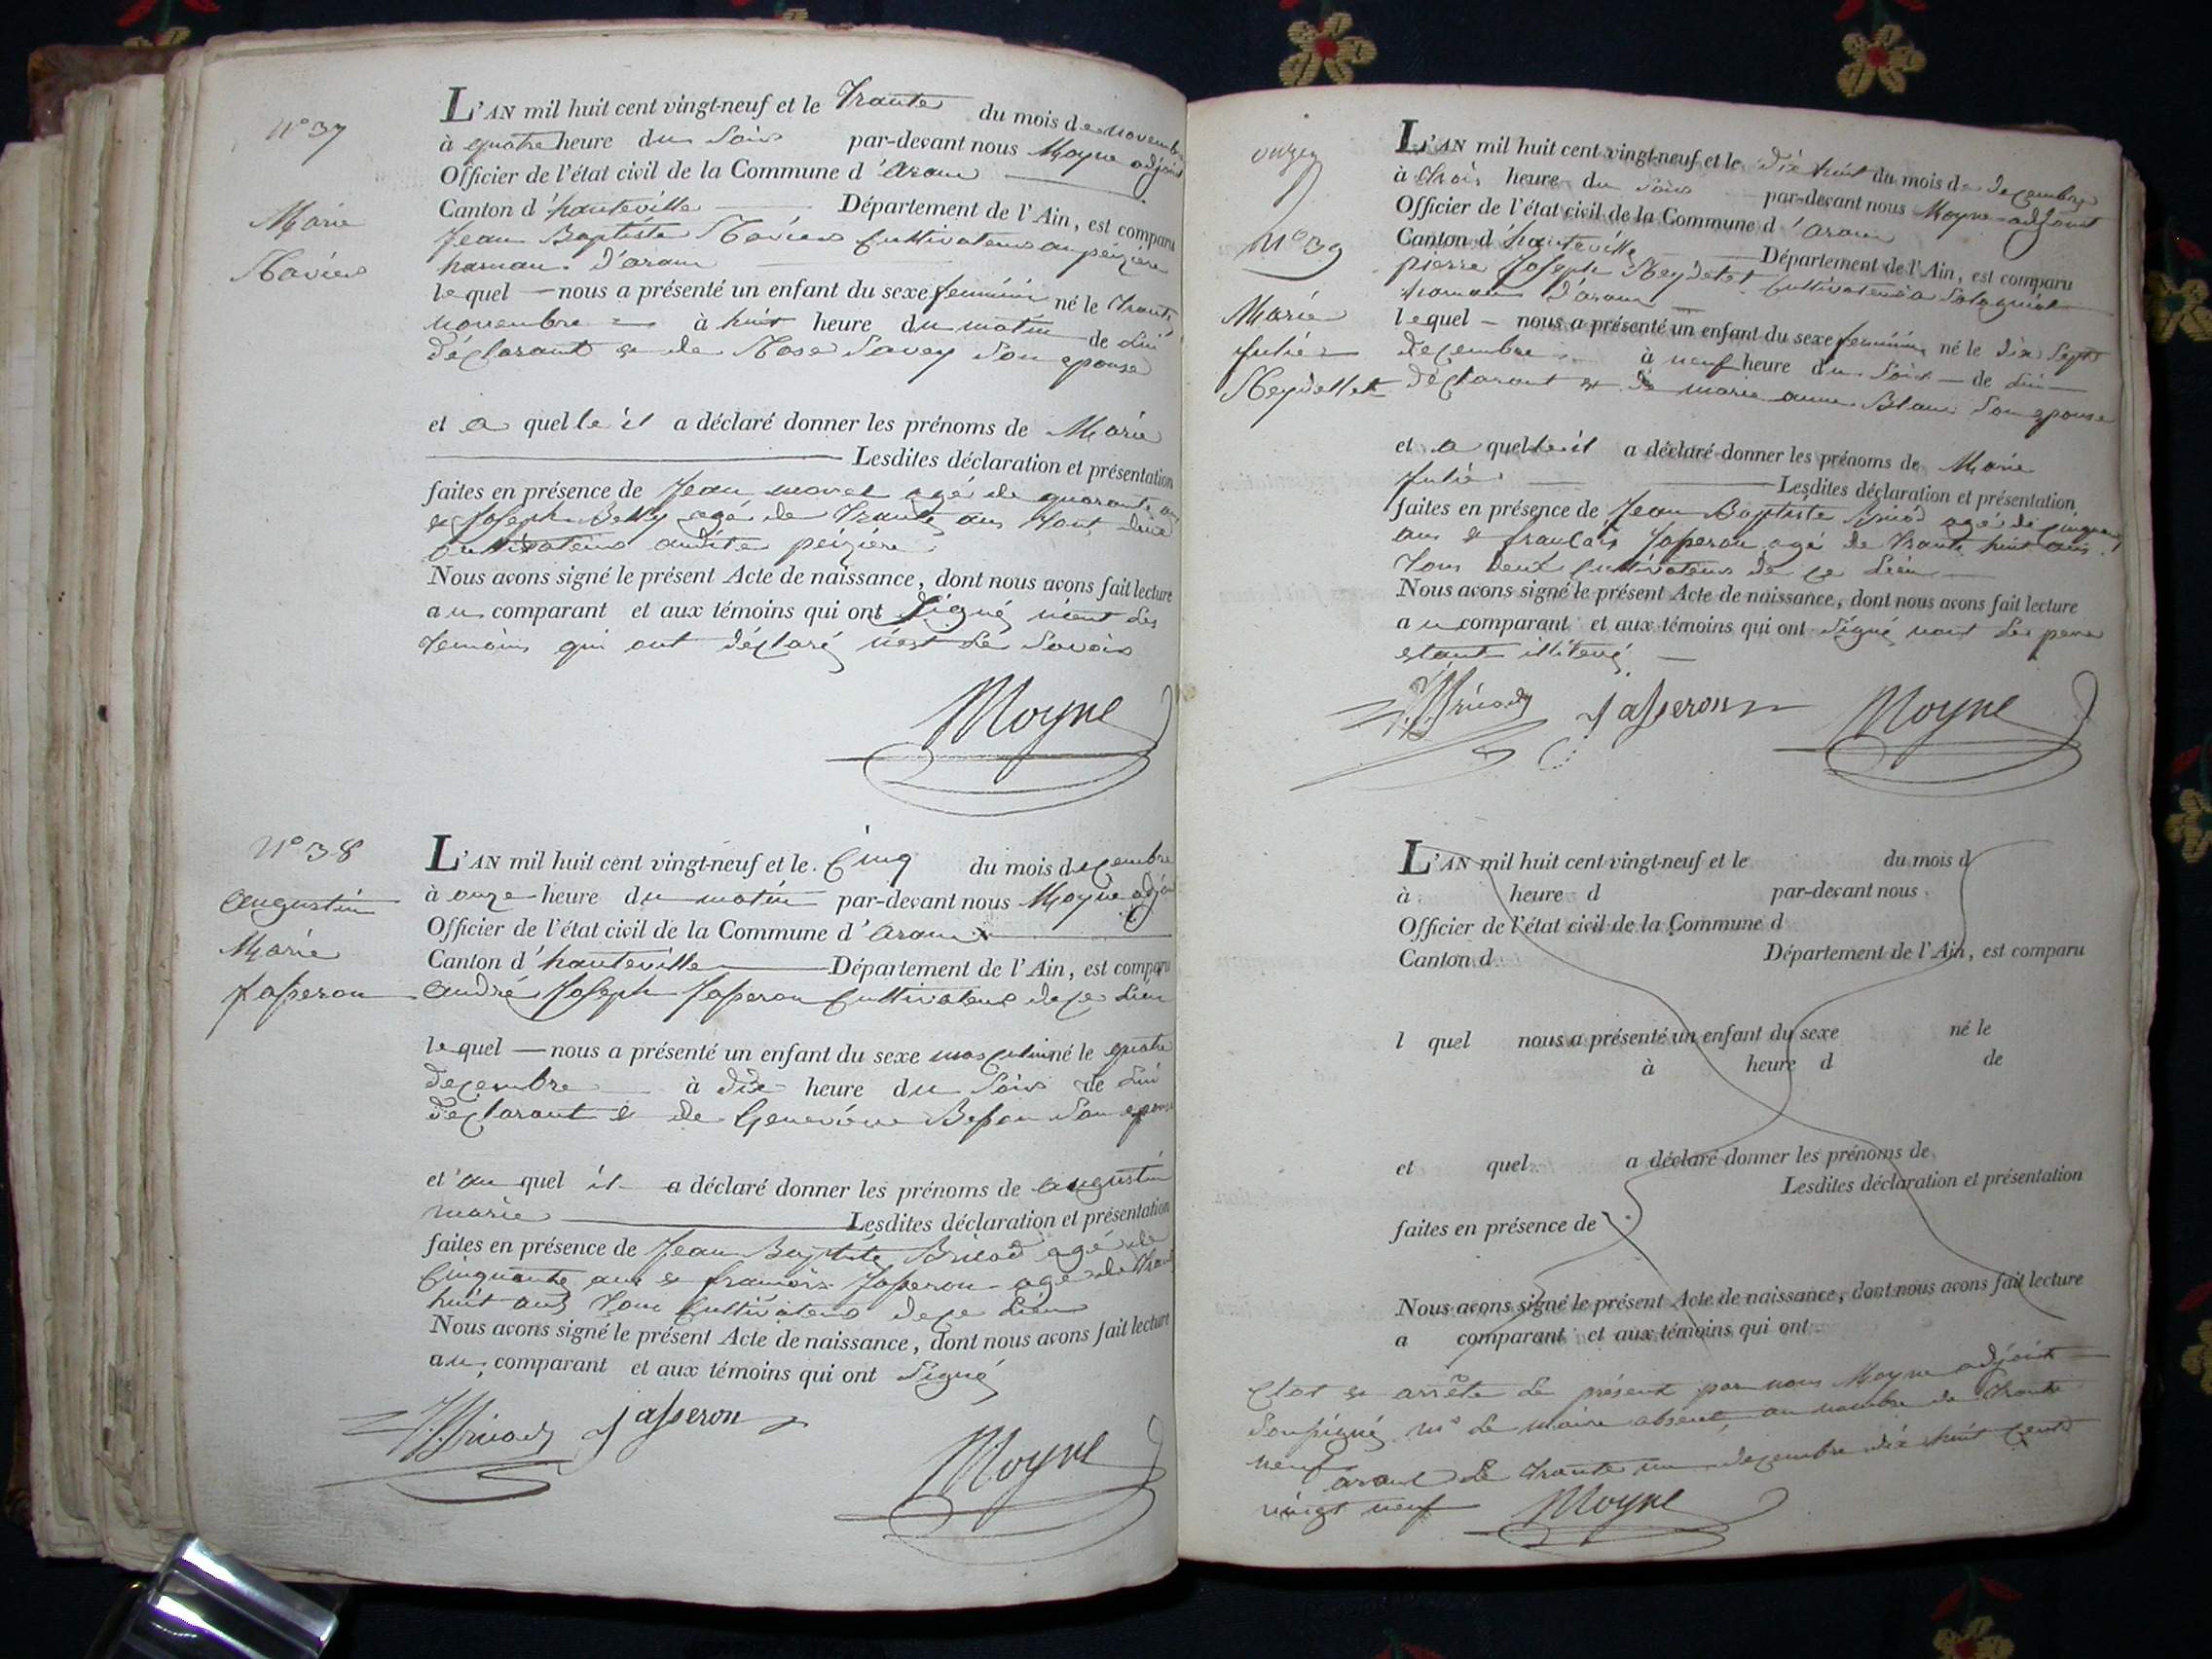 N° 37
Marie
Ravier
L'AN mil huit cent vingt-neuf et le Trante du mois de novembre
à quatre heure du Soir par-devant nous Moyne adjoint
Officier de l'état civil de la Commune d'aranc
Canton d'hauteville Département de l'Ain, est comparu
Jean Baptiste Ravier Cultivateur au peizière
hamau d'aranc
lequel nous a présenté un enfant du sexe feminin né le Trante
novembre à huit heure du matin de Lui
déclarant & de Rose Savey Son epouse
et a quelle il a déclaré donner les prénoms de Marie
Lesdites déclaration et présentation
faites en présence de Jean morel agé de quarante ans
& Joseph Belly agé de Trante ans tout deux
Cultivateurs audite peizière
Nous avons signé le présent Acte de naissance, dont nous avons fait lecture
au comparant et aux témoins qui ont Signé nient Les
temoins qui ont déclaré Le Savoir
Moyne
N° 38
augustin
Marie
Jasseron
L'AN mil huit cent vingt-neuf et le Cinq du mois decembre
à onze heure du matin par-devant nous Moyne adjoint
Officier de l'état civil de la Commune d'aranc
Canton d'hauteville Département de l'Ain, est comparu
andré Joseph Jasseron Cultivateur de ce Lieu
lequel nous a présenté un enfant du sexe masculin né le quatre
decembre à dix heure du Soir de Lui
déclarant & de Genevieve Besson Son epouse
et au quel il a déclaré donner les prénoms de augustin
marie Lesdites déclaration et présentation
faites en présence de Jean Baptiste Brucod agé de
Cinquante ans & francois Jasseron agé de Trante
huit ans Tous Cultivateurs de ce Lieu
Nous avons signé le présent Acte de naissance, dont nous avons fait lecture
au comparant et aux témoins qui ont Signé
Jasseron
Moyne
onzey
N° 39
Marie
Julie
Reydellet
L'AN mil huit cent vingt-neuf et le dix huit du mois de decembre
à trois heure du Soir par-devant nous Moyne adjoint
Officier de l'état civil de la Commune d'aranc
Canton d'hauteville Département de l'Ain, est comparu
pierre Joseph Reydelet Cultivateur a
hamau d'aranc
lequel nous a présenté un enfant du sexe feminin né le dix Sept
decembre à neuf heure du Soir de Lui
déclarant & de marie anne Blanc Son epouse
et a quelle il a déclaré donner les prénoms de Marie
Julie Lesdites déclaration et présentation
faites en présence de Jean Baptiste agé de Cinquante
ans & francois Jasseron agé de Trante huit ans
Tous deux Cultivateurs de ce Lieu
Nous avons signé le présent Acte de naissance, dont nous avons fait lecture
au comparant et aux témoins qui ont Signé nont Le pere
estant illiteré
Jasseron
Moyne
L'AN mil huit cent vingt-neuf et le du mois d
à heure d par-devant nous
Officier de l'état civil de la Commune d
Canton d Département de l'Ain, est comparu
l quel nous a présenté un enfant du sexe né le
à heure d de
et quel a déclaré donner les prénoms de
Lesdites déclaration et présentation
faites en présence de
Nous avons signé le présent Acte de naissance, dont nous avons fait lecture
a comparant et aux témoins qui ont
Clos & arrête Le présent par nous Moyne adjoint
Soussigné Le maire absent, au nombre de Trante
neuf
aranc Le Trante un decembre dix huit Cent
vingt neuf
Moyne